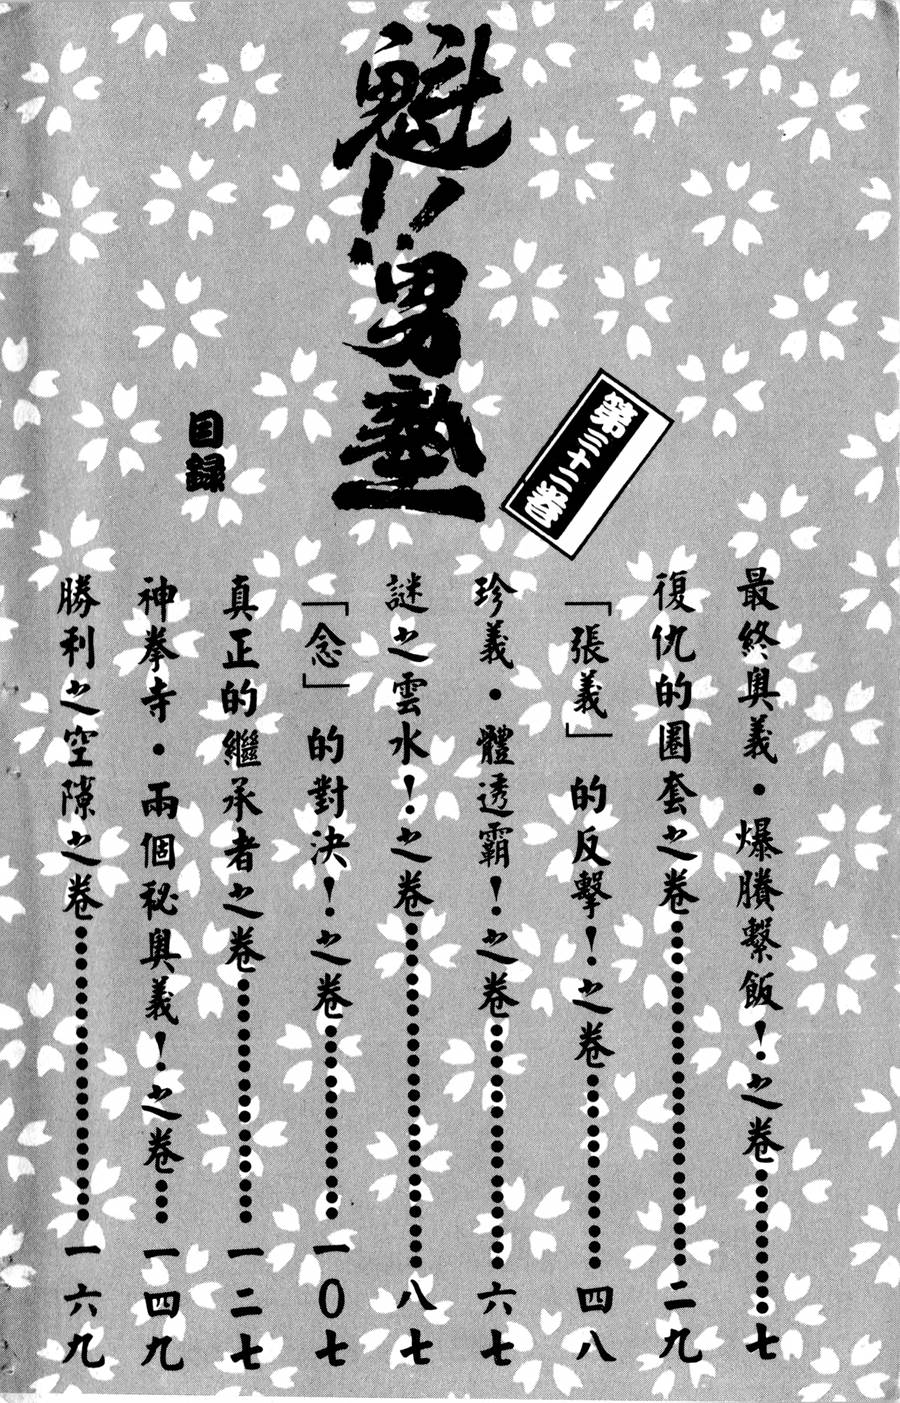 魁!!男塾
第三十二卷
目録
最終奥義・爆臢繫飯！之卷……七
復仇的圈套之卷……二九
「張義」的反擊！之卷……四八
珍義・體透霸！之卷……六七
謎之雲水！之卷……八七
「念」的對決！之卷……一〇七
真正的繼承者之卷……一二七
神拳寺・兩個秘奥義！之卷……一四九
勝利之空隙之卷……一六九